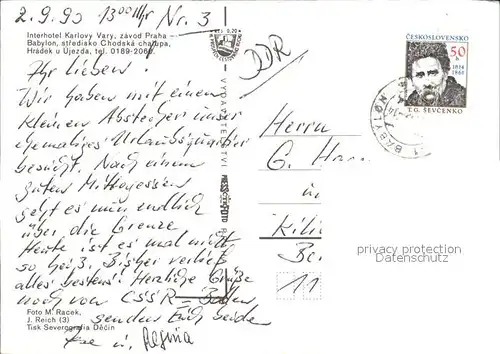 2.9.90 13⁰⁰ Uhr Nr. 3
Interhotel Karlovy Vary, závod Praha
Babylon, středisko Chodská chalupa,
Hrádek u Újezda, tel. 0189-2060
DDR
ČESKOSLOVENSKO
50 h
1814
1861
T. G. ŠEVČENKO
BABYLON
Ihr Lieben!
Wir haben mit einem
kleinen Abstecher unser
ehemaliges Urlaubsquartier
besucht. Nach einem
guten Mittagessen
geht es nun endlich
über die Grenze
Heute ist es mal nicht
so heiß. Bisher verlief
alles bestens! Herzliche Grüße
noch von CSSR-Boden
senden Euch beide
u. Regina
Herrn
G.
Be
11
privacy protection
Datenschutz
Foto M. Racek,
J. Reich (3)
Tisk Severografia Děčín